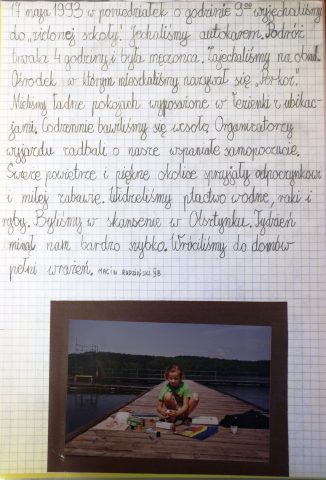 17 maja 1993 w poniedziałek o godzinie 9⁰⁰ wyjechaliśmy
do „zielonej szkoły". Jechaliśmy autokarem. Podróż
trwała 4 godziny i była męcząca. Zajechaliśmy na obiad.
Ośrodek w którym mieszkaliśmy nazywał się
Mieliśmy ładne pokoje wyposażone w łazienki z ubika-
cjami. Codziennie bawiliśmy się wesoło. Organizatorzy
wyjazdu zadbali o nasze wspaniałe samopoczucie.
Świeże powietrze i piękne okolice sprzyjały odpoczynkowi
i miłej zabawie. Widzieliśmy ptactwo wodne, raki i
ryby. Byliśmy w skansenie w Olsztynku. Tydzień
minął nam bardzo szybko. Wróciliśmy do domów
pełni wrażeń.